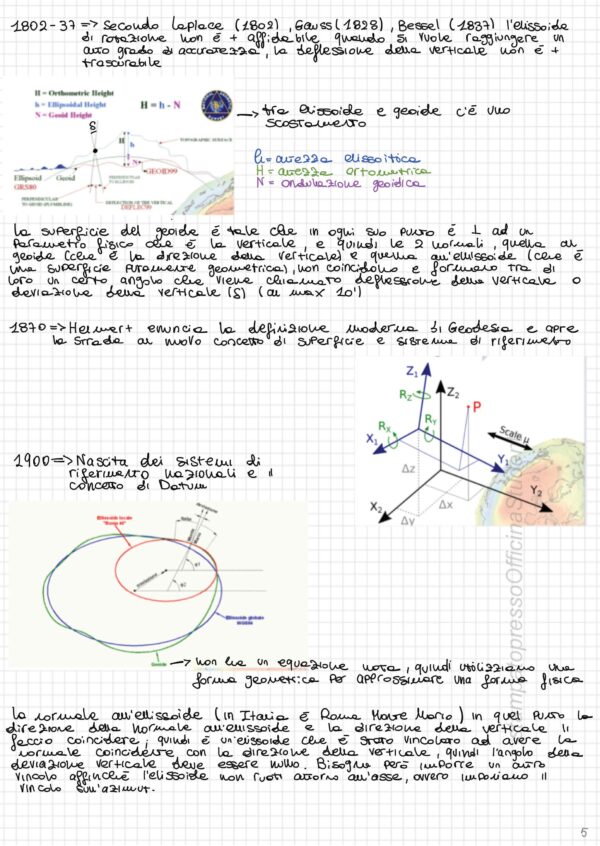 1802-37 => Secondo Laplace (1802), Gauss (1828), Bessel (1837) l'elissoide
di rotazione non è + affidabile quando si vuole raggiungere un
alto grado di accuratezza, la deflessione della verticale non è +
trascurabile
H = Orthometric Height
h = Ellipsoidal Height
N = Geoid Height
H = h - N
→ tra elissoide e geoide c'è uno
scostamento
δ
H
h
N
TOPOGRAPHIC SURFACE
GEOID99
Ellipsoid
GRS80
Geoid
PERPENDICULAR
TO ELLIPSOID
PERPENDICULAR
TO GEOID (PLUMBLINE)
DEFLECTION OF THE VERTICAL
DEFLEC99
h = altezza elissoitica
H = altezza ortometrica
N = ondulazione geoidica
la superficie del geoide è tale che in ogni suo punto è ⊥ ad un
parametro fisico che è la verticale, e quindi le 2 normali, quella al
geoide (che è la direzione della verticale) e quella all'ellissoide (che è
una superficie puramente geometrica), non coincidono e formano tra di
loro un certo angolo che viene chiamato deflessione della verticale o
deviazione della verticale (δ) (al max 10')
1870 => Helmert enuncia la definizione moderna di Geodesia e apre
la strada al nuovo concetto di superficie e sistema di riferimento
Z1
Z2
RZ
P
RX
RY
X1
Scale μ
Δz
Y1
Y2
Δx
X2
Δy
1900 => Nascita dei sistemi di
riferimento nazionali e il
concetto di Datum
Ellissoide locale
"Roma 40"
Ellissoide globale
WGS84
Geoide
→ non ha un equazione nota, quindi utilizziamo una
forma geometrica per approssimare una forma fisica
la normale all'ellissoide (in Italia è Roma Monte Mario) in quel punto la
direzione della normale all'ellissoide e la direzione della verticale li
faccio coincidere, quindi è un'elissoide che è stato vincolato ad avere la
normale coincidente con la direzione della verticale, quindi l'angolo della
deviazione verticale deve essere nullo. Bisogna però imporre un altro
vincolo affinchè l'elissoide non ruoti attorno all'asse, ovvero imponiamo il
vincolo sull'azimut.
5